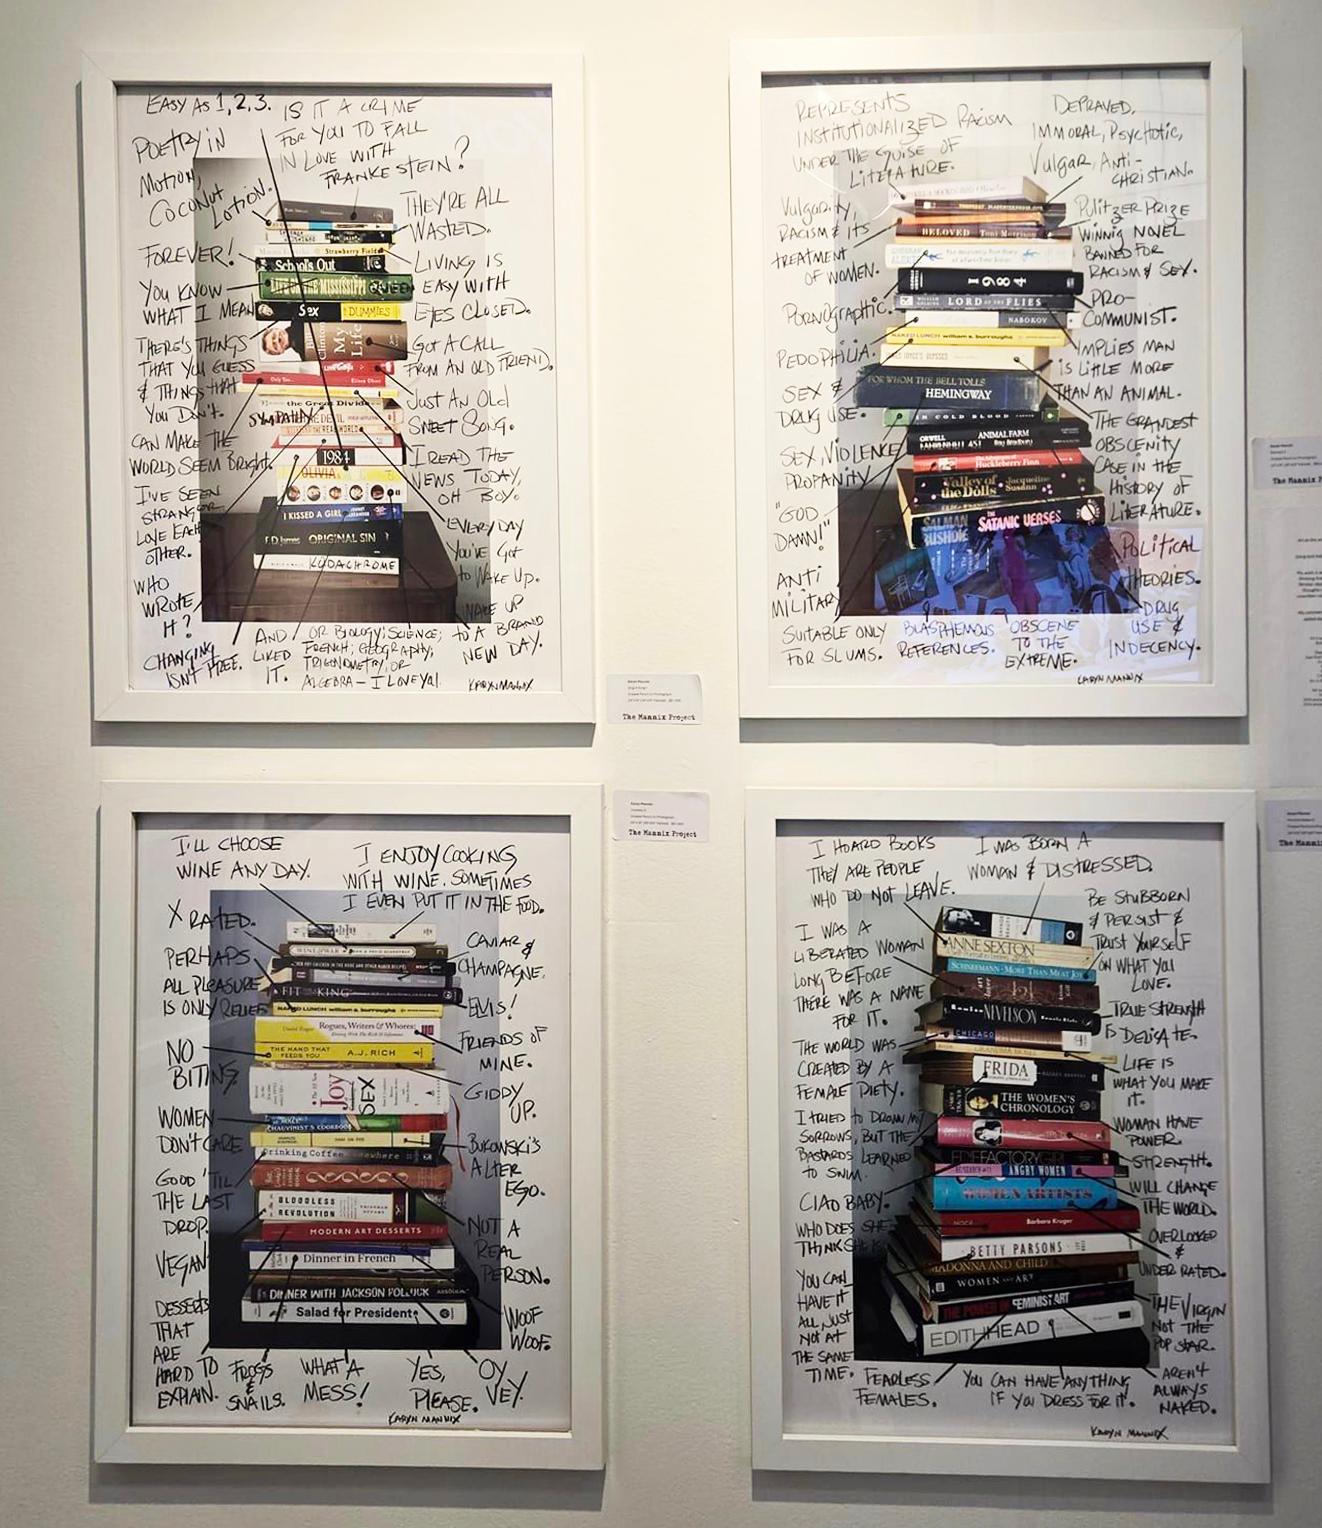 EASY AS 1,2,3.
IS IT A CRIME
FOR YOU TO FALL
IN LOVE WITH
FRANKESTEIN?
POETRY IN
MOTION,
COCONUT
LOTION.
FOREVER!
YOU KNOW
WHAT I MEAN
THERE'S THINGS
THAT YOU GUESS
& THINGS THAT
YOU DON'T.
CAN MAKE THE
WORLD SEEM BRIGHT.
I'VE SEEN
STRANGER
LOVE EACH
OTHER.
WHO
WROTE
IT?
CHANGING
ISN'T FREE.
THEY'RE ALL
WASTED.
LIVING IS
EASY WITH
EYES CLOSED.
GOT A CALL
FROM AN OLD FRIEND.
JUST AN OLD
SWEET SONG.
I READ THE
NEWS TODAY,
OH BOY.
EVERYDAY
YOU'VE GOT
TO WAKE UP.
WAKE UP
TO A BRAND
NEW DAY.
AND I
LIKED
IT.
OR BIOLOGY; SCIENCE;
FRENCH; GEOGRAPHY;
TRIGONOMETRY; OR
ALGEBRA — I LOVE YOU.
KARYN MANNIX
Strawberry Fields
School's Out
MISSISSIPPI
Sex
DUMMIES
Clinton
My
Life
the Great Divide
SYMPATHY
DEVIL
THE REAL WORLD
1984
OLIVIA
I KISSED A GIRL
P.D. James ORIGINAL SIN
KODACHROME
The Mannix Project
REPRESENTS
INSTITUTIONALIZED RACISM
UNDER THE GUISE OF
LITERATURE.
DEPRAVED,
IMMORAL, PSYCHOTIC,
VULGAR, ANTI-
CHRISTIAN.
VULGARITY,
RACISM & ITS
TREATMENT
OF WOMEN.
PORNOGRAPHIC.
PEDOPHILIA.
SEX &
DRUG USE.
SEX, VIOLENCE
PROFANITY
"GOD
DAMN!"
ANTI
MILITARY
SUITABLE ONLY
FOR SLUMS.
PULITZER PRIZE
WINNIG NOVEL
BANNED FOR
RACISM & SEX.
PRO-
COMMUNIST.
IMPLIES MAN
IS LITTLE MORE
THAN AN ANIMAL.
THE GRANDEST
OBSCENITY
CASE IN THE
HISTORY OF
LITERATURE.
POLITICAL
THEORIES.
DRUG
USE &
INDECENCY.
BLASPHEMOUS
REFERENCES.
OBSCENE
TO THE
EXTREME.
KARYN MANNIX
BELOVED Toni Morrison
1984
WILLIAM GOLDING LORD OF THE FLIES
NABOKOV
NAKED LUNCH william s. burroughs
JAMES JOYCE'S ULYSSES
FOR WHOM THE BELL TOLLS
HEMINGWAY
IN COLD BLOOD
ORWELL ANIMAL FARM
FAHRENHEIT 451 Ray Bradbury
Huckleberry Finn
Valley of the Dolls Jacqueline Susann
SALMAN RUSHDIE THE SATANIC VERSES
The Mannix
I'LL CHOOSE
WINE ANY DAY.
I ENJOY COOKING
WITH WINE. SOMETIMES
I EVEN PUT IT IN THE FOOD.
X RATED.
PERHAPS
ALL PLEASURE
IS ONLY RELIEF
NO
BITING
WOMEN
DON'T CARE
GOOD 'TIL
THE LAST
DROP.
VEGAN
DESSERTS
THAT
ARE
HARD TO
EXPLAIN.
CAVIAR &
CHAMPAGNE.
ELVIS!
FRIENDS OF
MINE.
GIDDY
UP.
BUKOWSKI'S
ALTER
EGO.
NOT A
REAL
PERSON.
WOOF
WOOF.
FROGS
&
SNAILS.
WHAT A
MESS!
YES,
PLEASE.
OY
VEY.
KARYN MANNIX
KING
NAKED LUNCH william s. burroughs
Rogues, Writers & Whores:
THE HAND THAT
FEEDS YOU A.J. RICH
Joy
SEX
CHAUVINIST'S COOKBOOK
HAM ON RYE
Drinking Coffee Elsewhere
BLOODLESS
REVOLUTION
MODERN ART DESSERTS
Dinner in French
DINNER WITH JACKSON POLLOCK
Salad for President
The Mannix Project
I HOARD BOOKS
THEY ARE PEOPLE
WHO DO NOT LEAVE.
I WAS BORN A
WOMAN & DISTRESSED.
I WAS A
LIBERATED WOMAN
LONG BEFORE
THERE WAS A NAME
FOR IT.
THE WORLD WAS
CREATED BY A
FEMALE DIETY.
I TRIED TO DROWN MY
SORROWS, BUT THE
BASTARDS LEARNED
TO SWIM.
CIAO BABY.
WHO DOES SHE
THINK SHE IS
YOU CAN
HAVE IT
ALL JUST
NOT AT
THE SAME
TIME.
BE STUBBORN
& PERSIST &
TRUST YOURSELF
ON WHAT YOU
LOVE.
TRUE STRENGTH
IS DELICATE.
LIFE IS
WHAT YOU MAKE
IT.
WOMAN HAVE
POWER.
STRENGTH.
WILL CHANGE
THE WORLD.
OVERLOOKED
&
UNDER RATED.
THE VIRGIN
NOT THE
POP STAR.
AREN'T
ALWAYS
NAKED.
FEARLESS
FEMALES.
YOU CAN HAVE ANYTHING
IF YOU DRESS FOR IT.
KARYN MANNIX
ANNE SEXTON
SCHNEEMANN - MORE THAN MEAT JOY
NEVELSON
CHICAGO
GRANDMA MOSES
FRIDA
THE WOMEN'S
CHRONOLOGY
EDIE FACTORY GIRL
ANGRY WOMEN
WOMEN ARTISTS
Barbara Kruger
BETTY PARSONS
MADONNA AND CHILD
WOMEN AND ART
THE POWER OF FEMINIST ART
EDITH HEAD
The Mannix